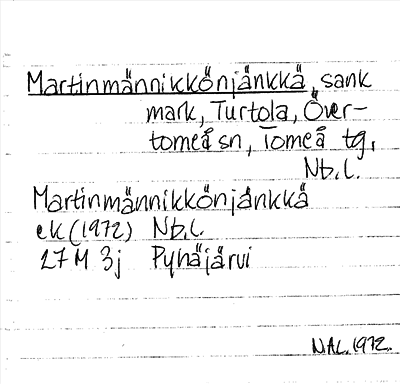 Martinmännikkönjänkkä, sank
mark, Turtola, Över-
torneå sn, Torneå tg,
Nb.l.
Martinmännikkönjänkkä
ek (1972) Nb.l.
27 M 3j Pyhäjärvi
NAL. 1972.